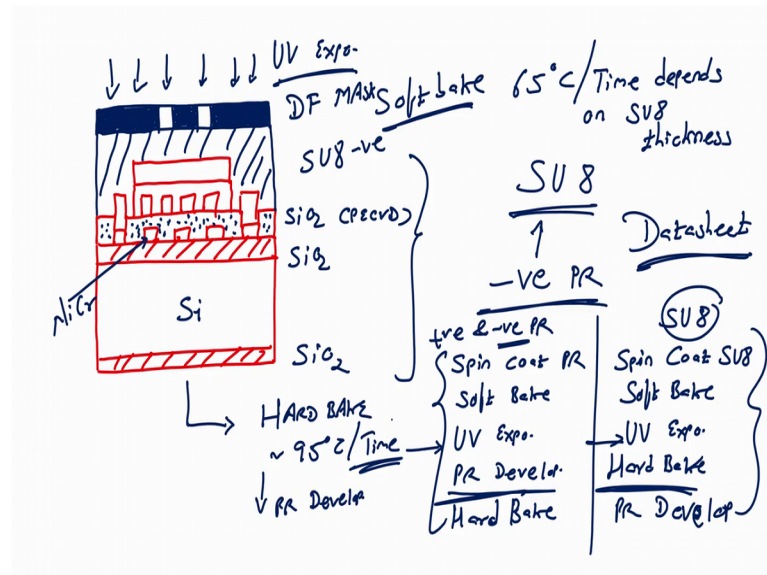 UV Expo.
DF MASK
Soft bake 65°C/Time depends
on SU8
thickness
SU8-ve
SiO2 (PECVD)
SiO2
NiCr
Si
SiO2
SU8
-ve PR
Datasheet
HARD BAKE
~ 95°C/Time
PR Develop
+ve & -ve PR
Spin Coat PR
Soft Bake
UV Expo.
PR Develop.
Hard Bake
SU8
Spin Coat SU8
Soft Bake
UV Expo.
Hard Bake
PR Develop